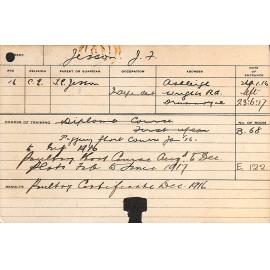 Jesson. J. F.
AGE RELIGION PARENT OR GUARDIAN OCCUPATION ADDRESS DATE OF ENTRANCE
16 C.E. Jesson Ashleigh 1.16
Wright's Rd. left
Drummoyne 23.6.17
COURSE OF TRAINING Diploma Course NO. OF ROOM
First year B.68
Piggery Short Course Jan '16
to 1916
Poultry Short Course Aug to Dec.
Plots Feb to June 1917 E.122
RESULTS Poultry Certificate Dec. 1916